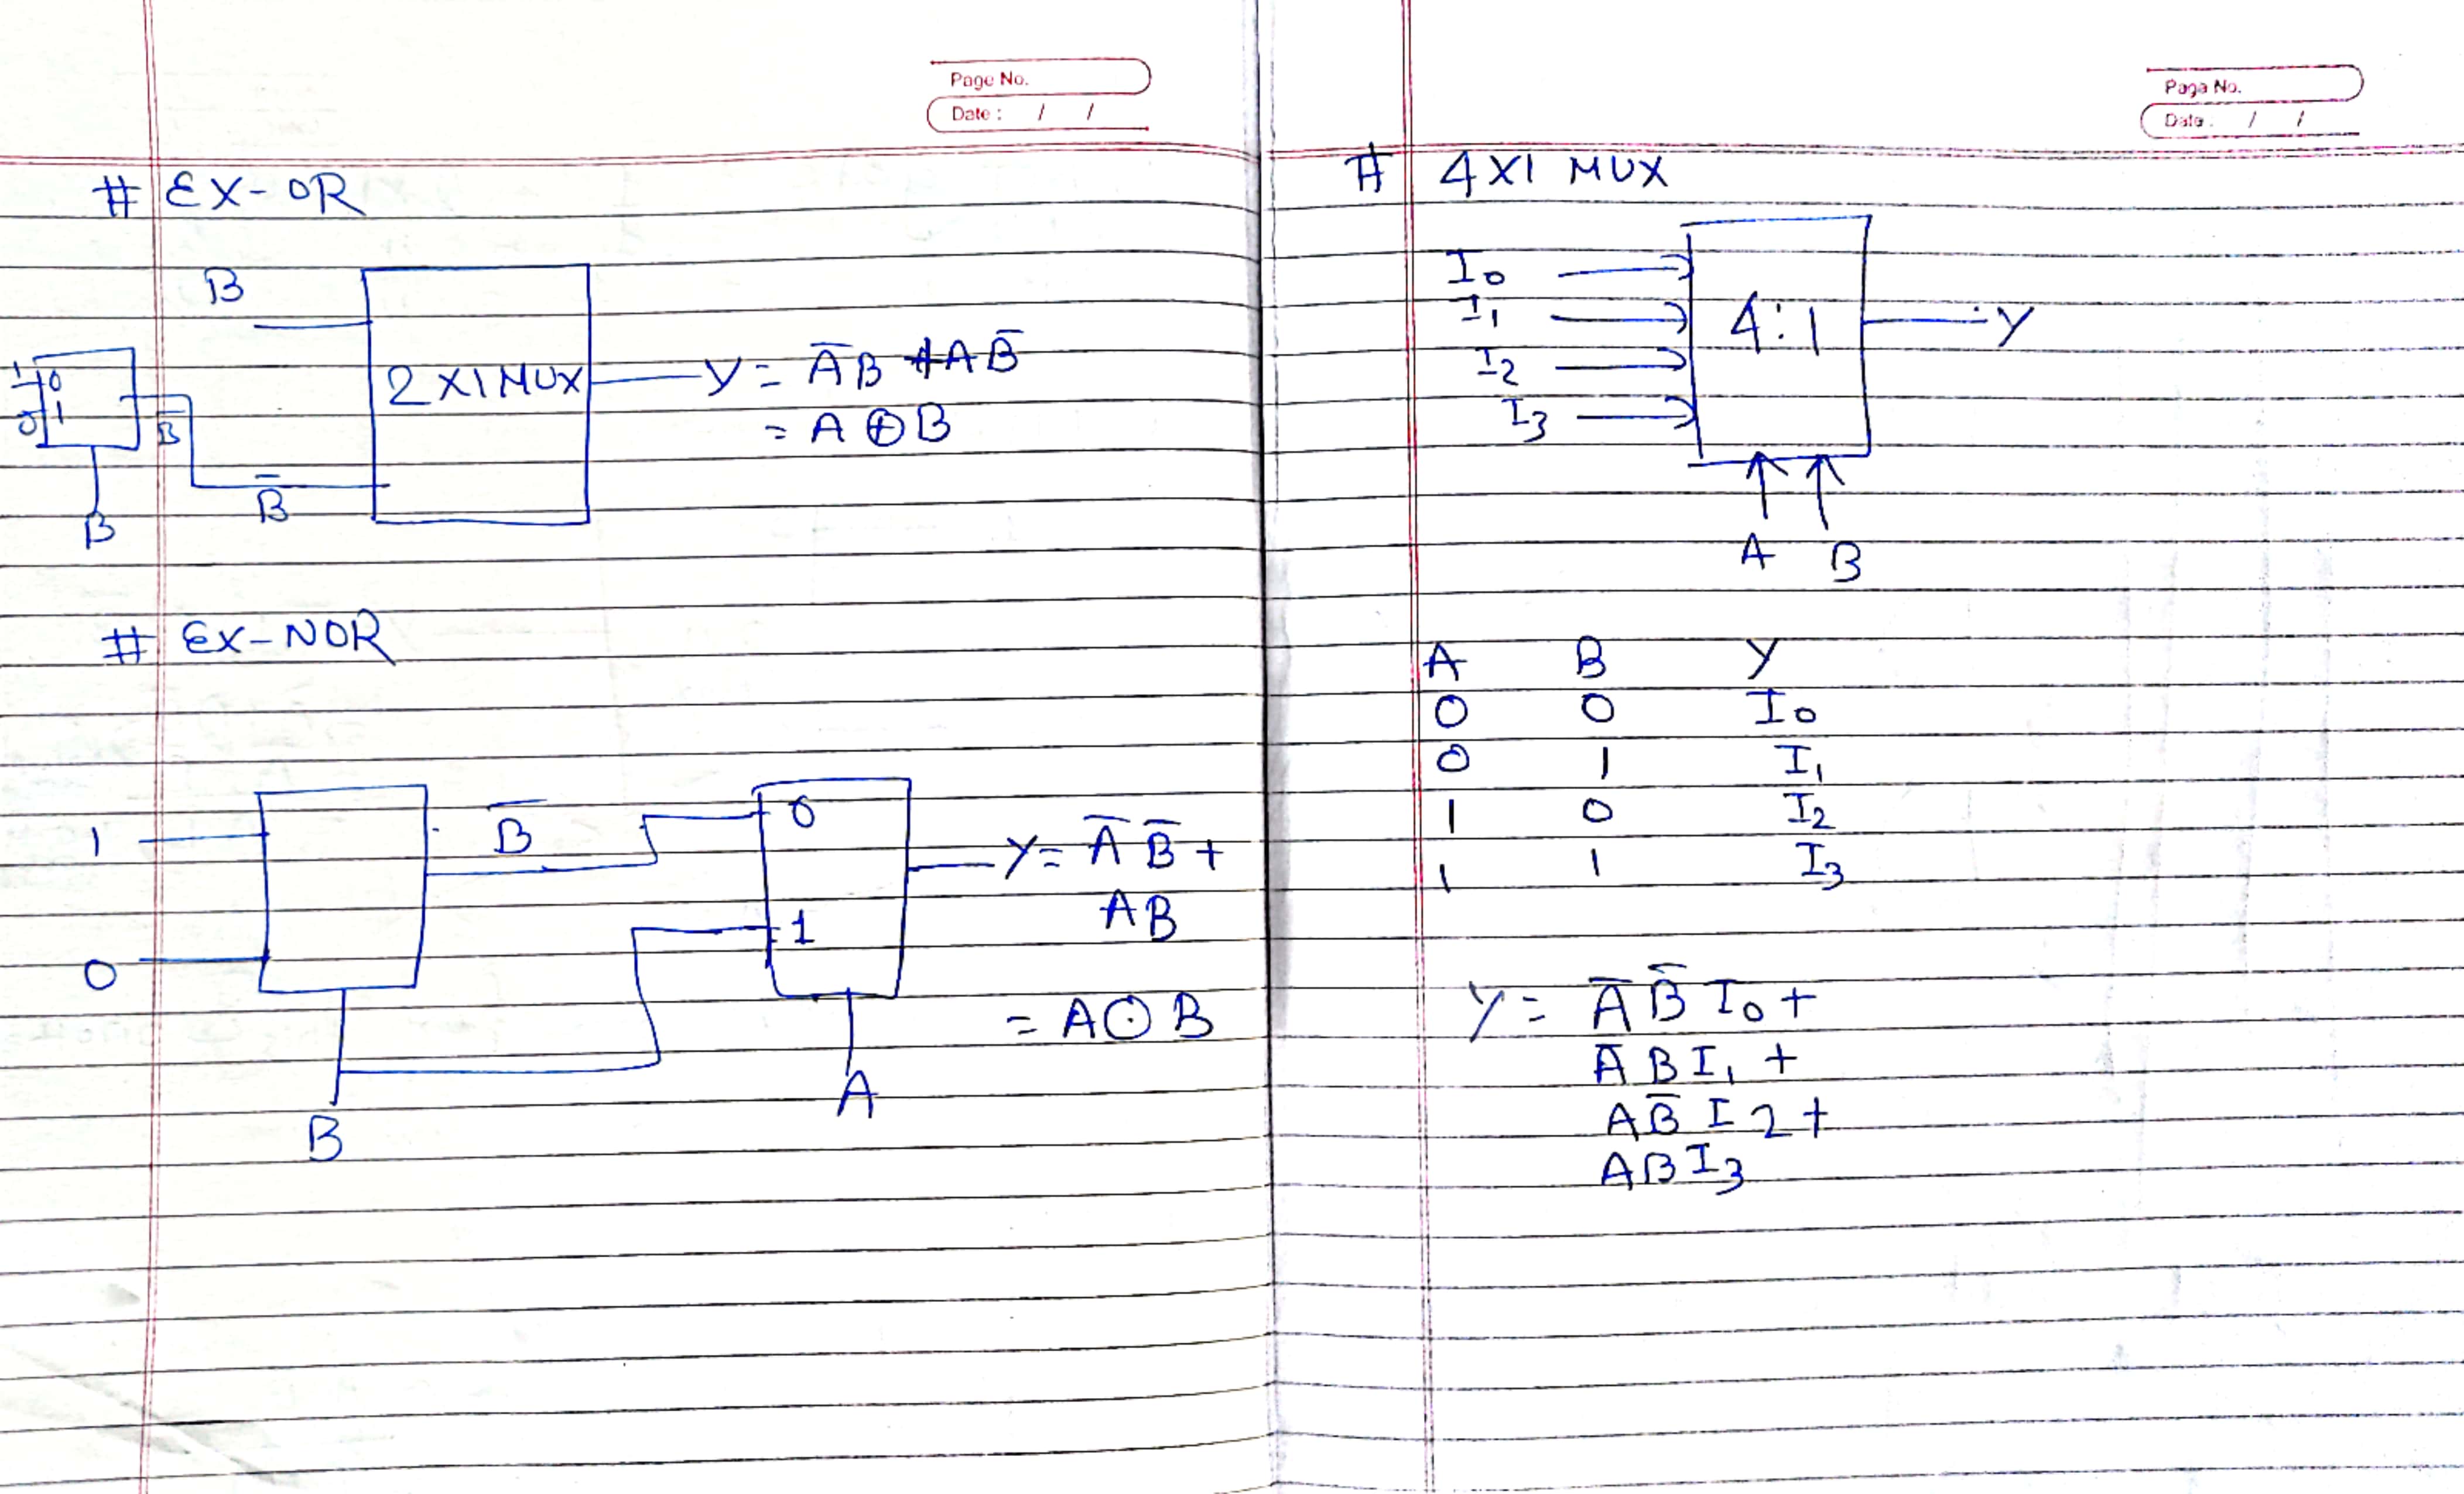 Page No.
Date : / /
# EX-OR
B
1 0
0 1
B̅
B
B̅
2X1 MUX
Y = A̅B + AB̅
= A⊕B
# EX-NOR
1
0
B
B̅
0
1
A
Y = A̅ B̅ +
AB
= A⊙B
Page No.
Date : / /
# 4X1 MUX
I0
I1
I2
I3
4:1
Y
A B
A B Y
0 0 I0
0 1 I1
1 0 I2
1 1 I3
Y = A̅ B̅ I0 +
A̅ B I1 +
A B̅ I2 +
A B I3